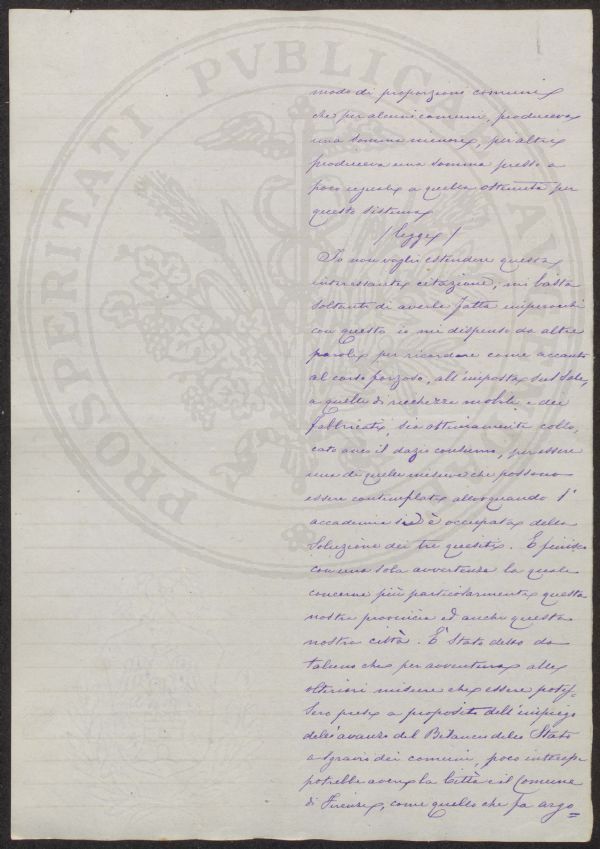 PROSPERITATI PVBLICAE AVGENDAE
modo di proporzioni comuni
che per alcuni comuni, produceva
una somma minore, per altri
produceva una somma presso a
poco eguale a quella ottenuta per
questo sistema
(legge)
Io non voglio estendere questa
interessante citazione, mi basta
soltanto di averla fatta imperocchè
con questo io mi dispenso da altre
parole per ricordare come accanto
al corso forzoso, all'imposta sul Sale,
a quelle di ricchezza mobile e dei
Fabbricati, sia ottimamente collo,
cato anco il dazio consumo, per essere
una di quelle misure che possono
essere contemplate allorquando l'
accademia si è occupata della
Soluzione dei tre quesiti. E finisco
con una sola avvertenza la quale
concerne più particolarmente questa
nostra provincia ed anche questa
nostra città. È Stato detto da
taluno che per avventura alle
ulteriori misure che essere potes,
sero prese a proposito dell'impiego
dell'avanzo del Bilancio dello Stato
a sgravio dei comuni, poco interesse
potrebbe avere la Città e il Comune
di Firenze, come quello che fa argo=